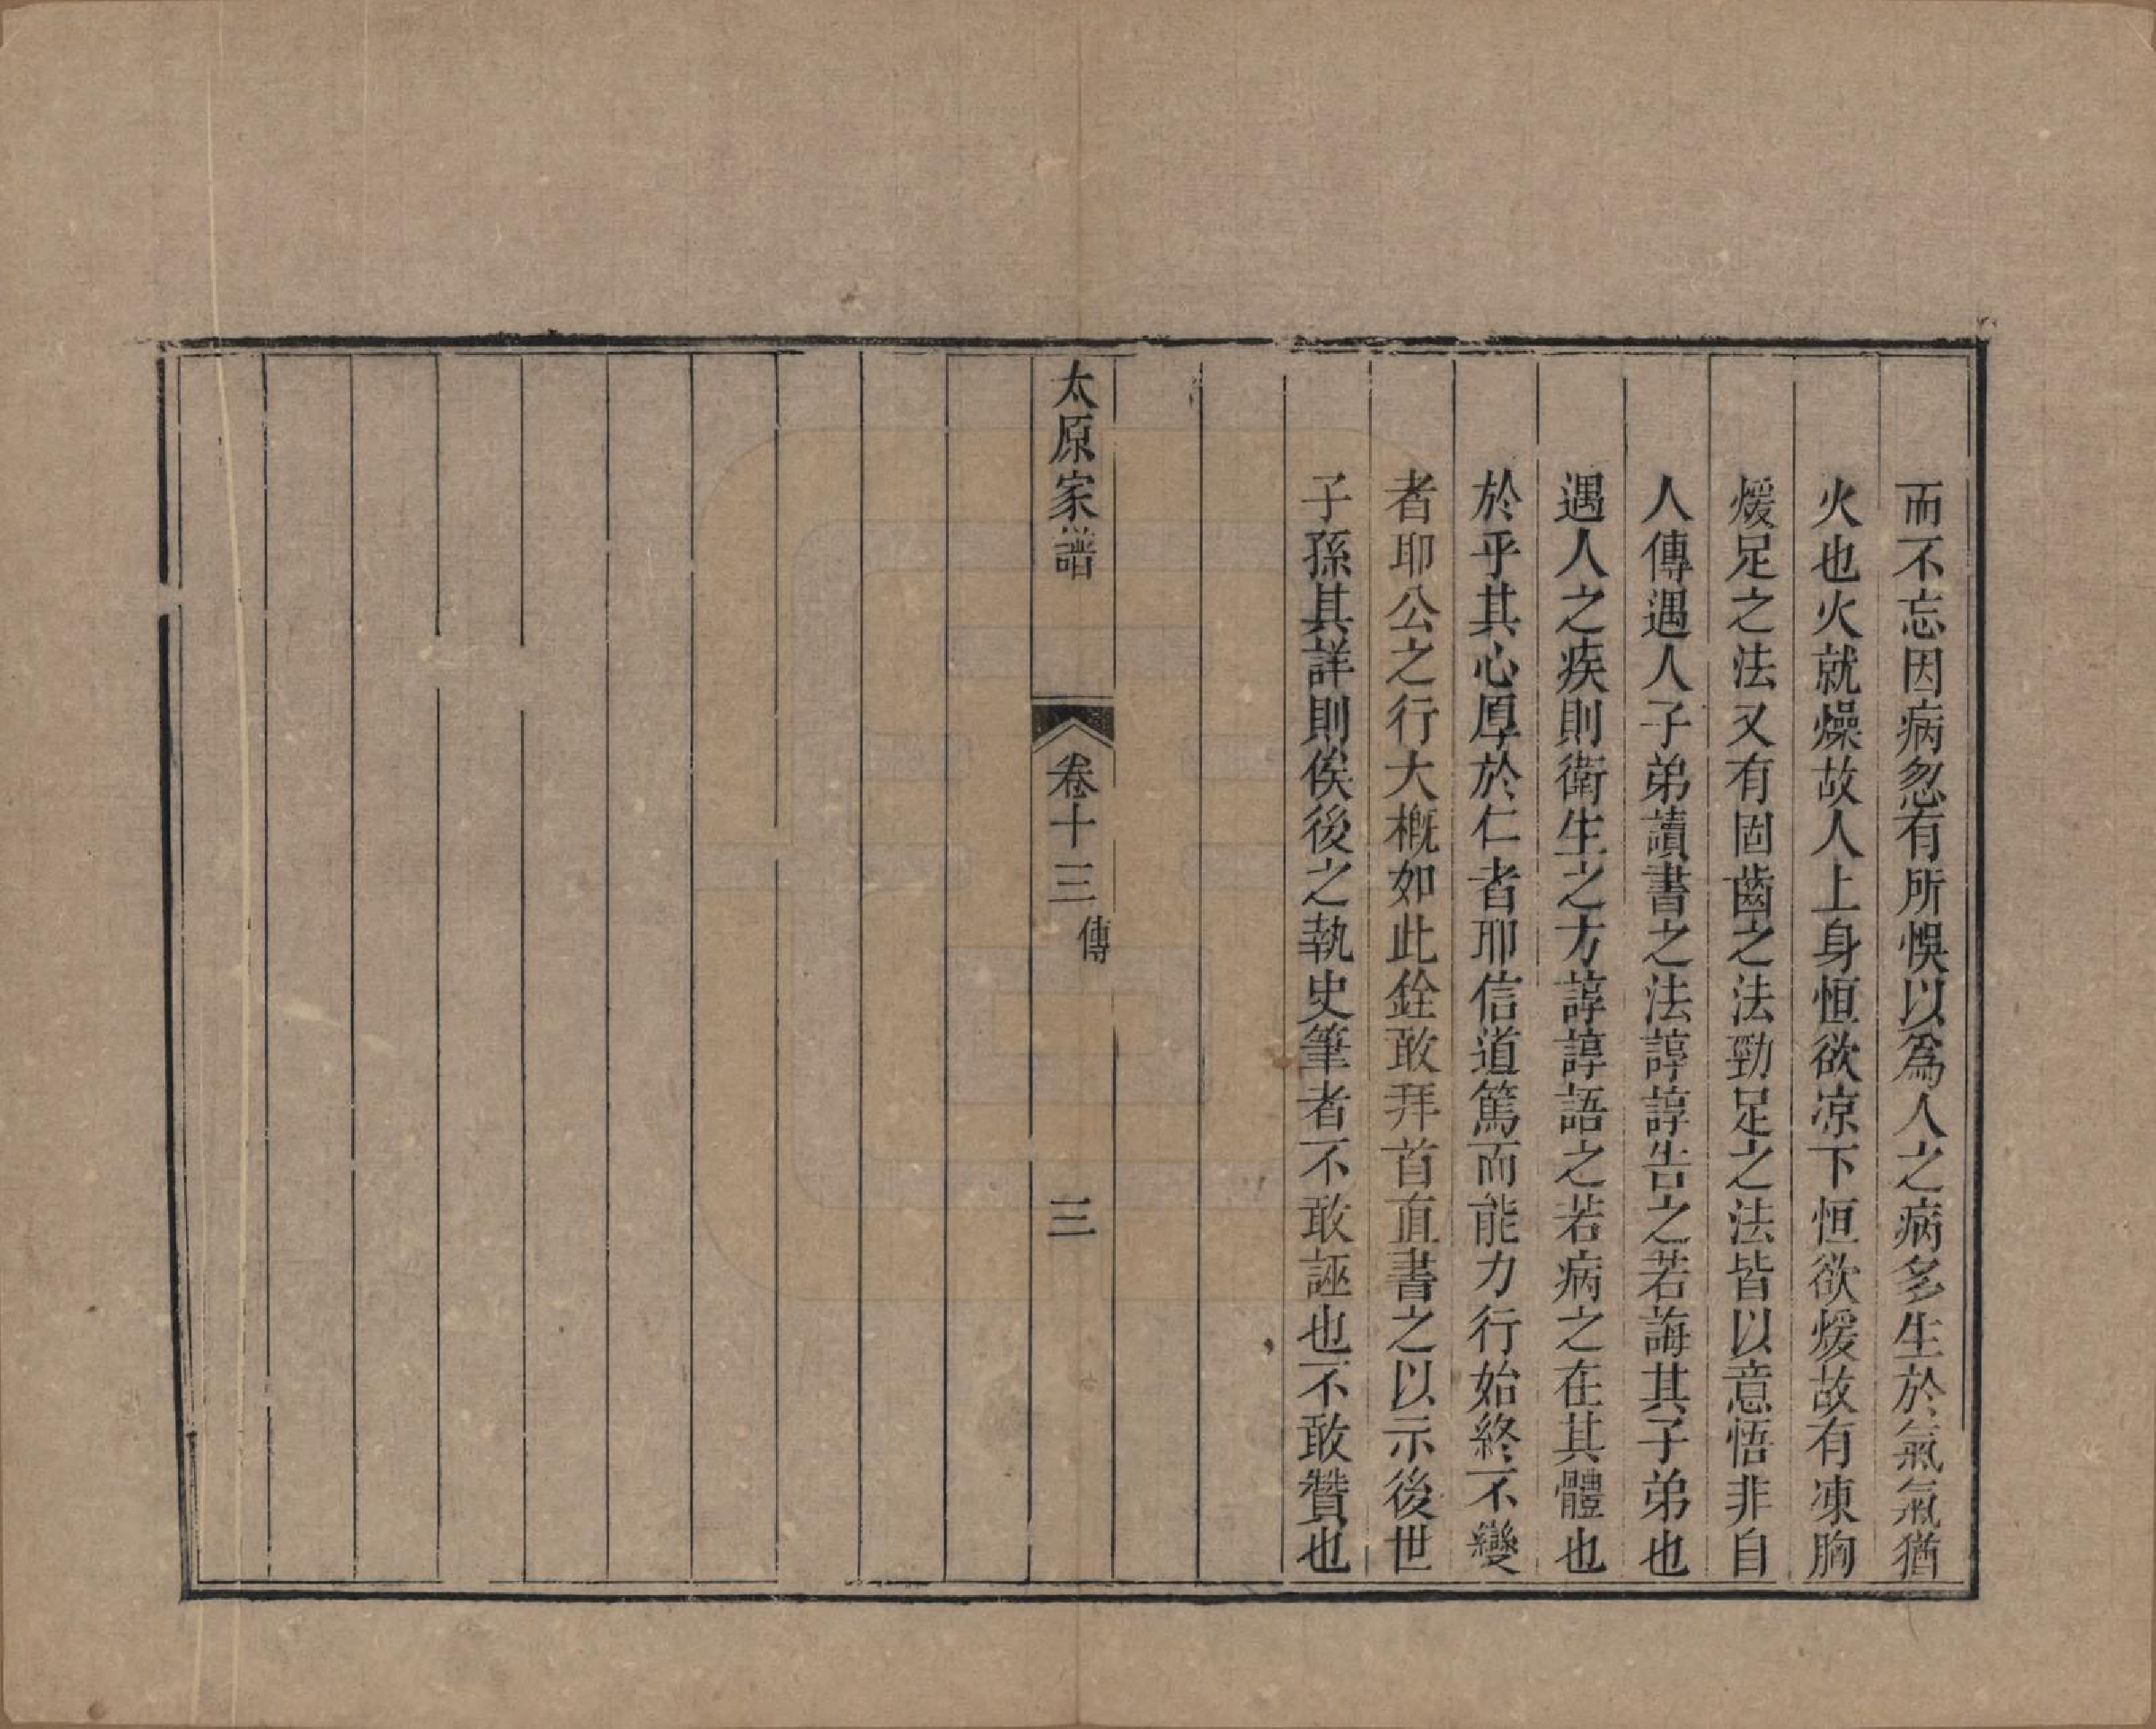 而不忘因病忽有所悞以爲人之病多生於氣氣猶
火也火就燥故人上身恒欲凉下恒欲煖故有凍胸
煖足之法又有固齒之法勁足之法皆以意悟非自
人傳遇人子弟讀書之法諄諄告之若誨其子弟也
遇人之疾則衛生之方諄諄語之若病之在其體也
於乎其心厚於仁者耶信道篤而能力行始終不變
者耶公之行大槪如此銓敢拜首直書之以示後世
子孫其詳則俟後之執史筆者不敢誣也不敢贊也
太原家譜
卷十三
傳
三